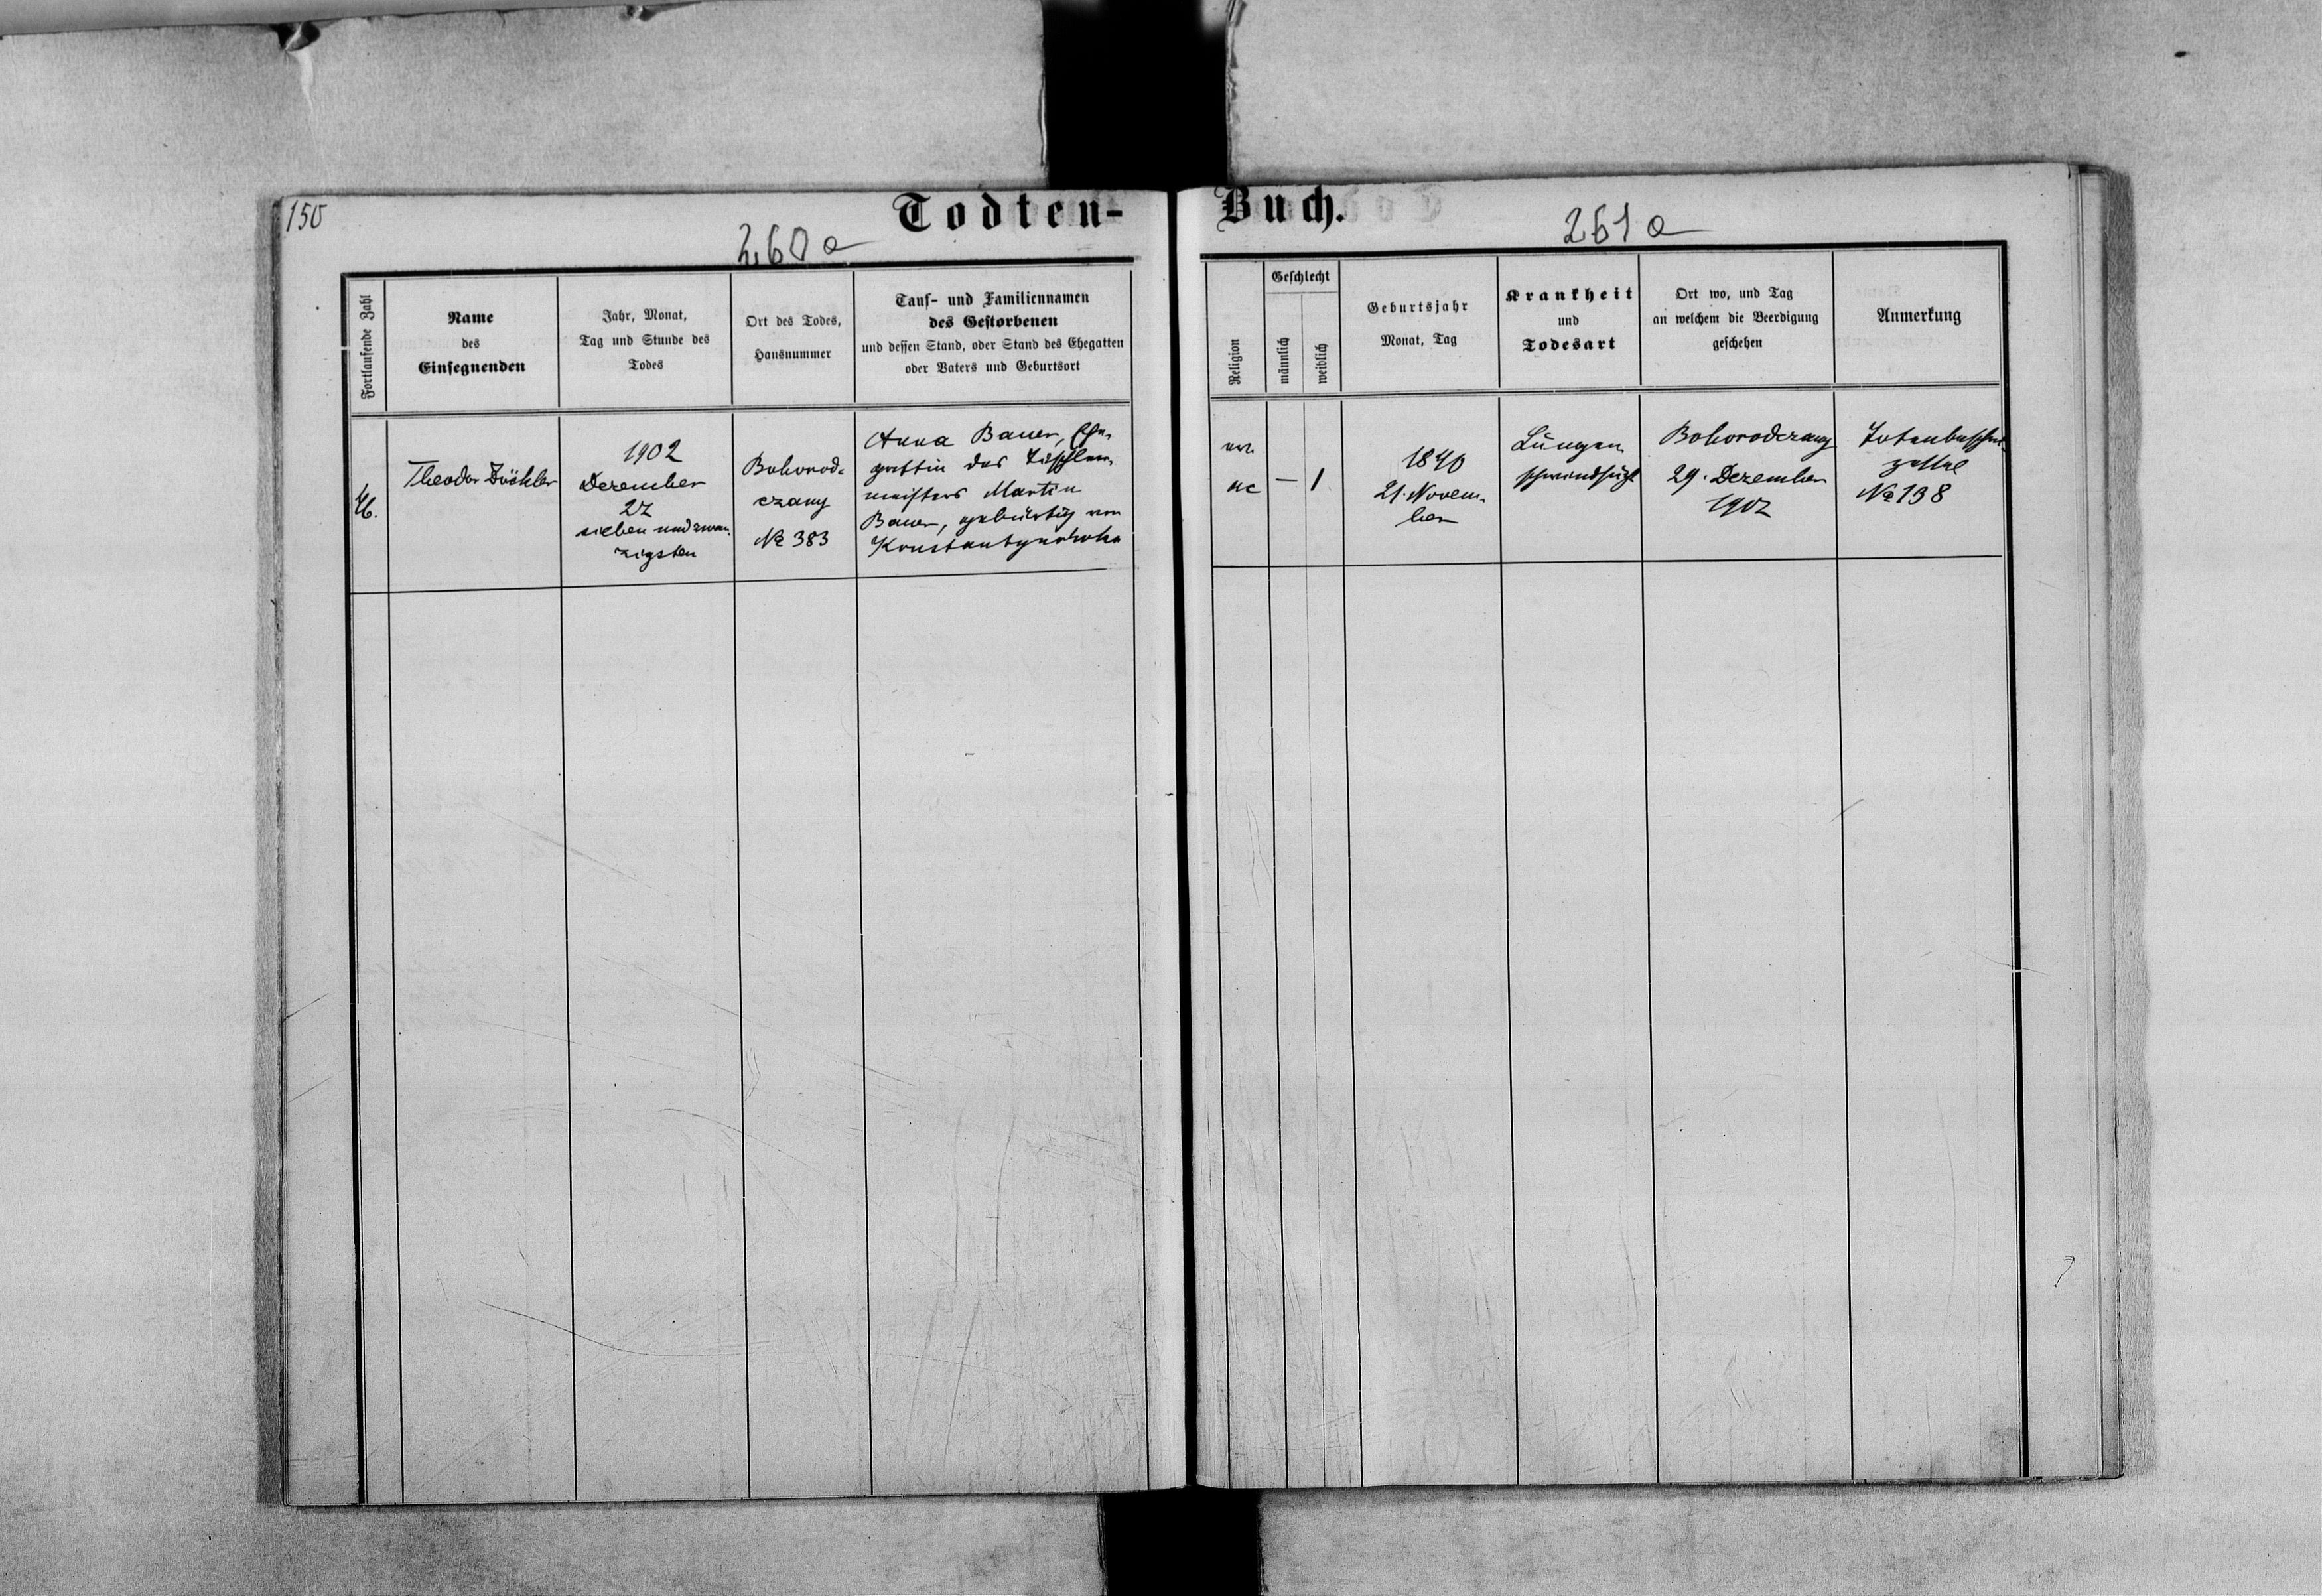 150
Todten-
Buch.
260a
261a
Fortlaufende Zahl
Name
des
Einsegnenden
Jahr, Monat,
Tag und Stunde des
Todes
Ort des Todes,
Hausnummer
Tauf- und Familiennamen
des Gestorbenen
und dessen Stand, oder Stand des Ehegatten
oder Vaters und Geburtsort
Religion
Geschlecht
männlich
weiblich
Geburtsjahr
Monat, Tag
Krankheit
und
Todesart
Ort wo, und Tag
an welchem die Beerdigung
geschehen
Anmerkung
Theodor Zöckler
1902
Dezember
27
sieben und zwan-
zigsten
Bohorod-
czany
No 383
Anna Bauer, Ehe-
gattin des Tischler-
meisters Martin
Bauer, gebürtig von
—
1
1840
21. Novem-
ber
Lungen
schwindsucht
Bohorodczany
29. Dezember
1902
Totenbeschau-
zettel
No 138